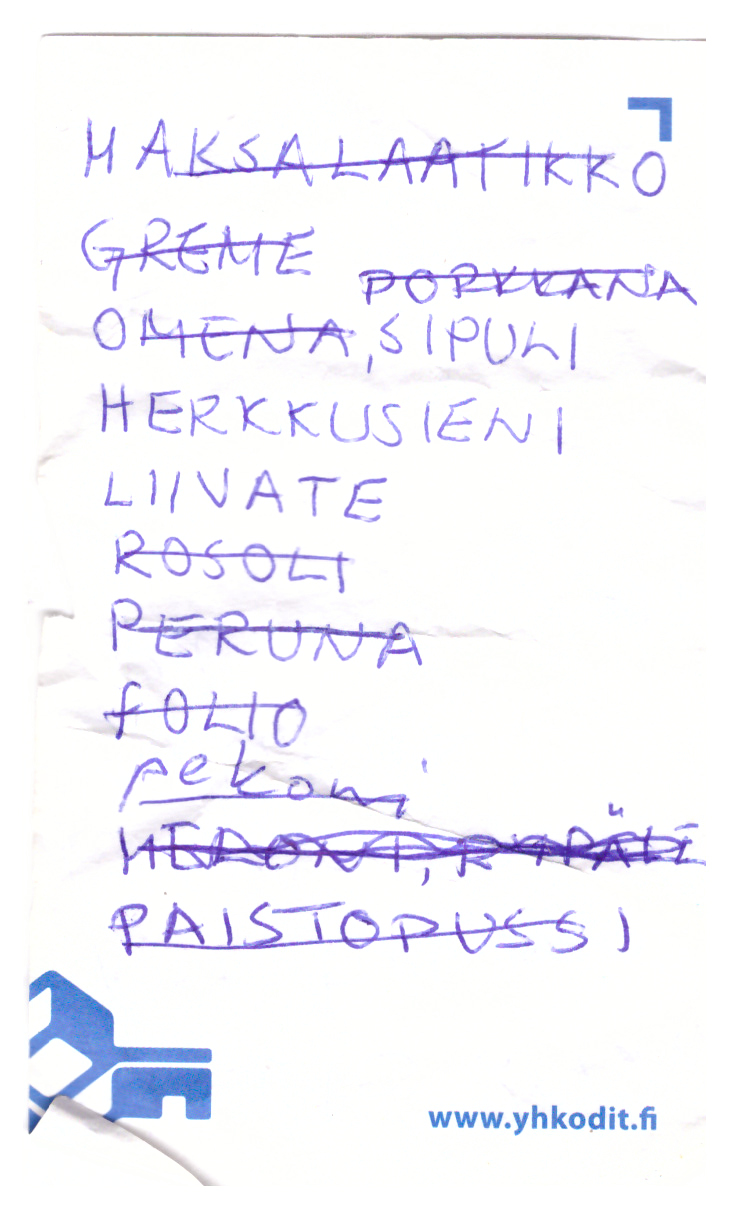 MAKSALAATIKKO
GREME
PORKKANA
OMENA, SIPULI
HERKKUSIENI
LIIVATE
ROSOLI
PERUNA
FOLIO
pekoni
PAISTOPUSSI
www.yhkodit.fi